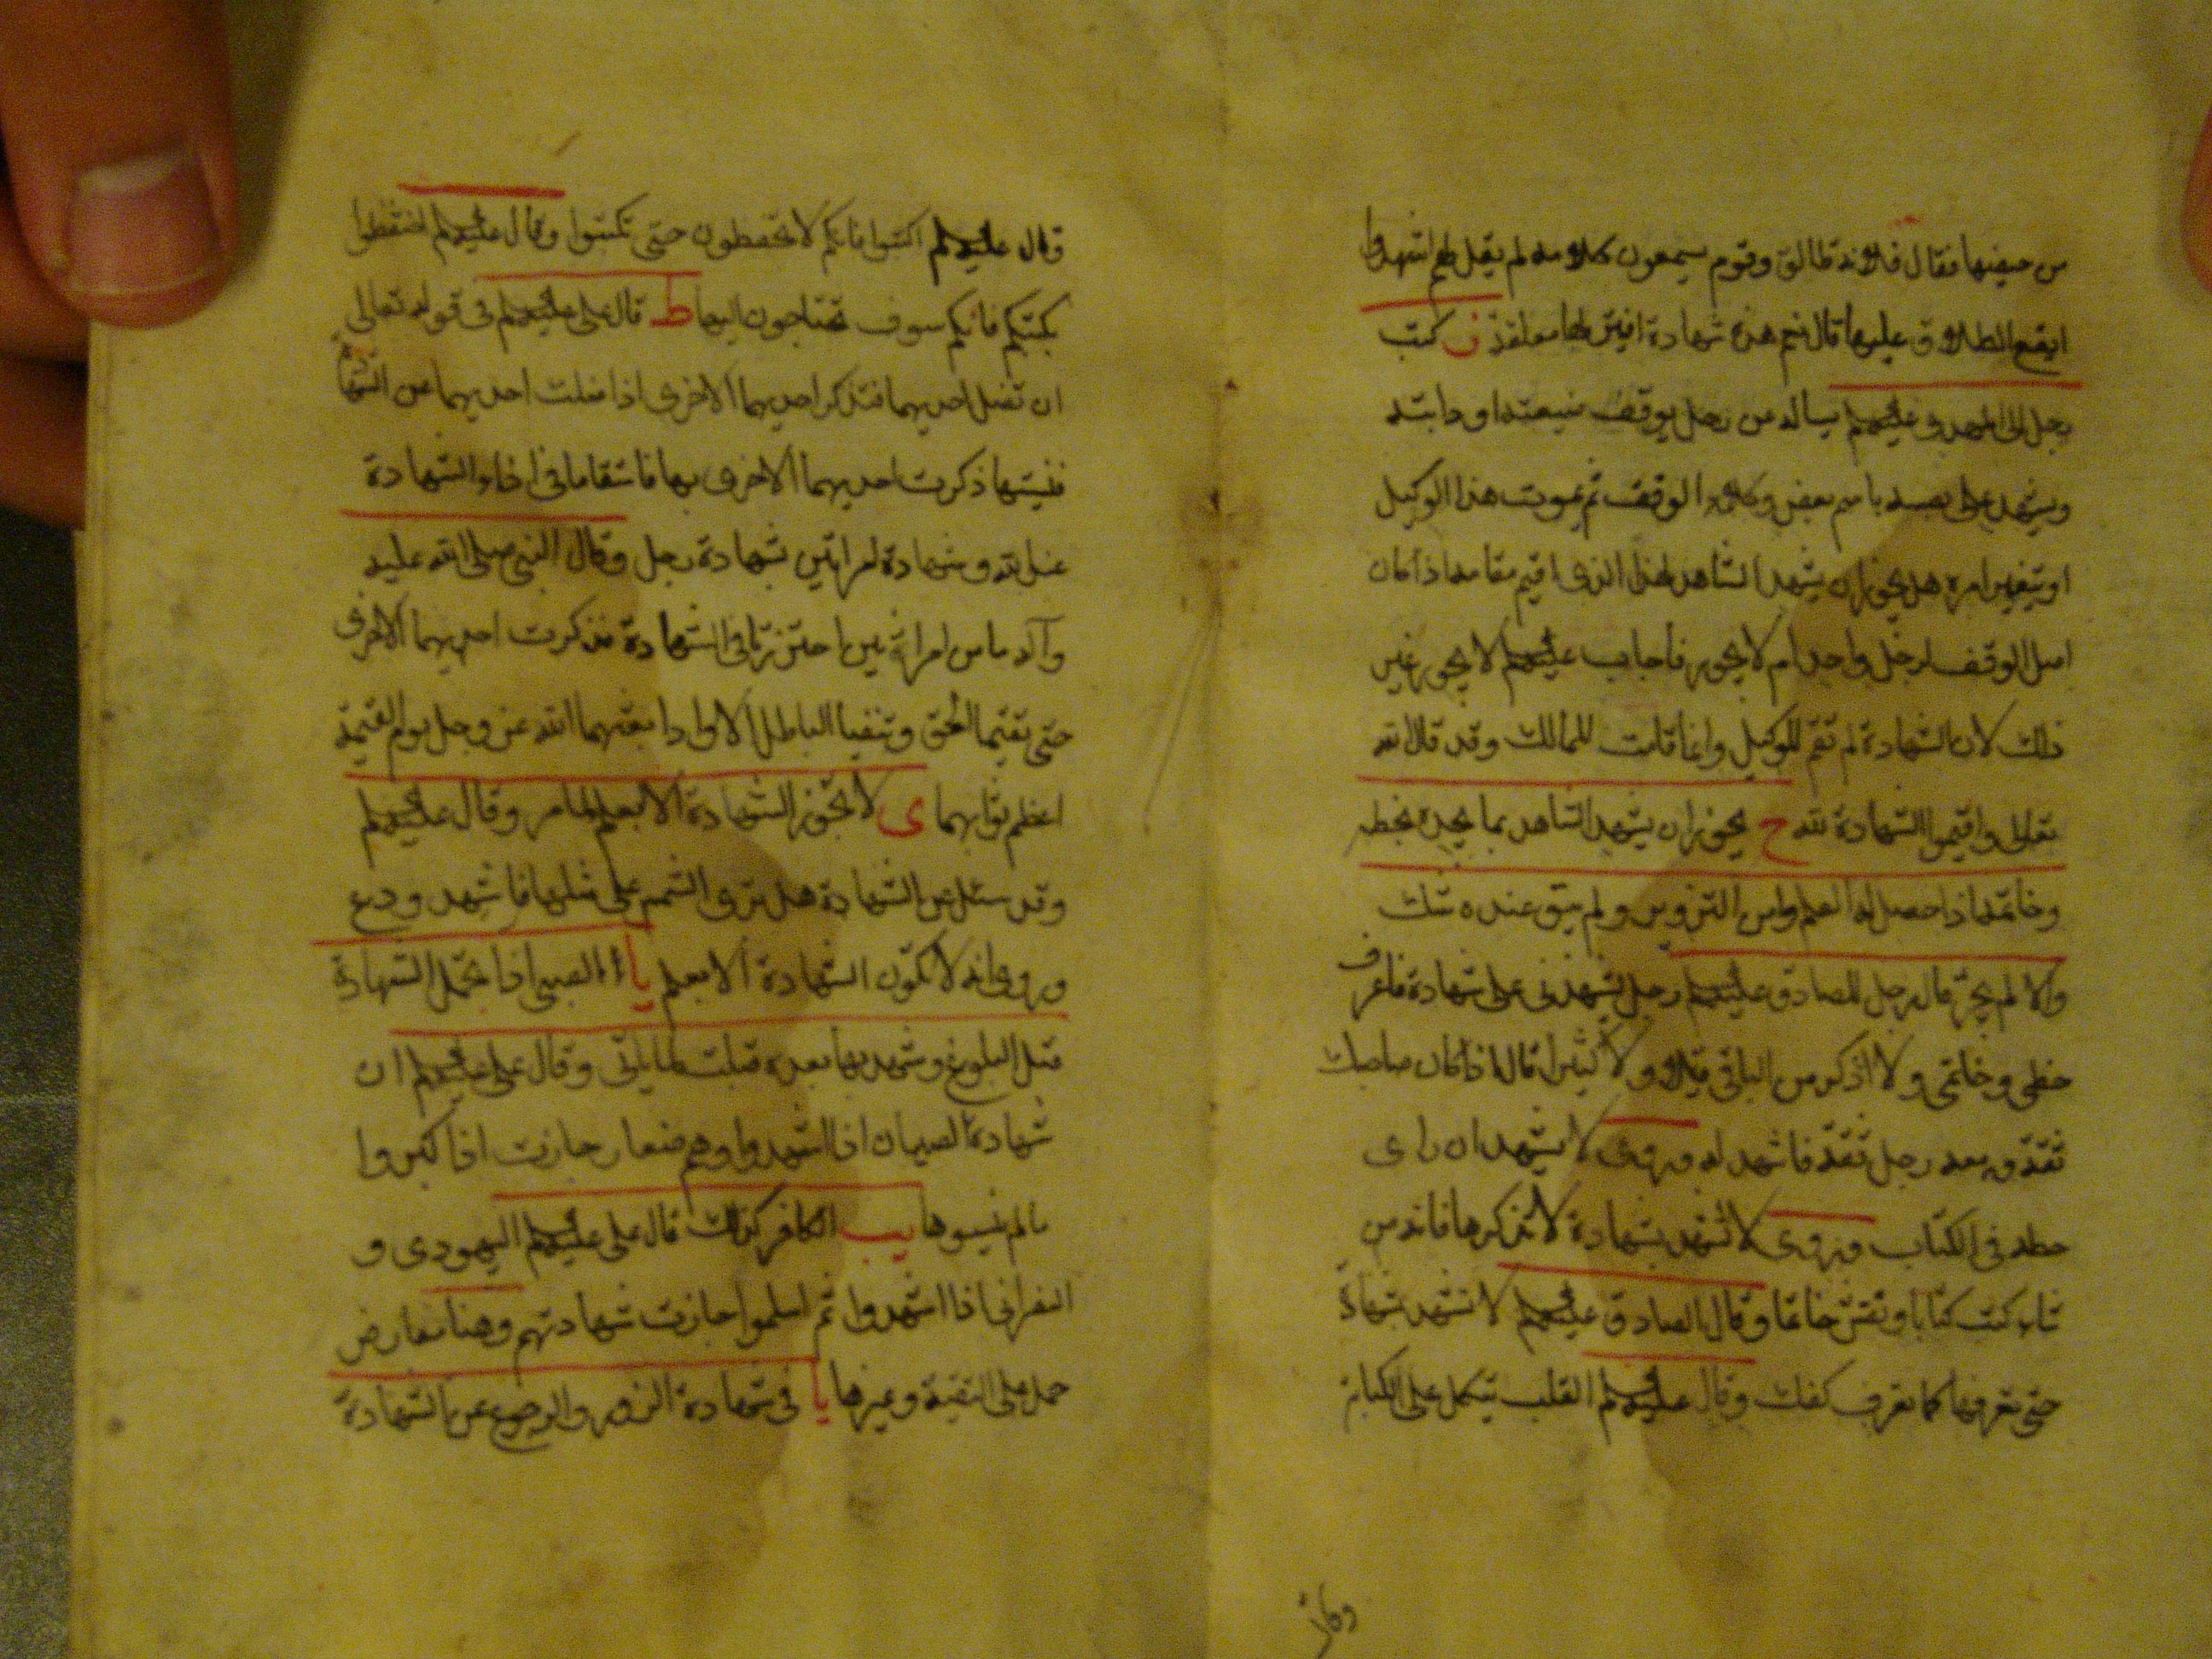 من حيضها فقال فلانة طالق وقوم يسمعون كلامه لم يقل لهم اشهدوا
ايقع الطلاق عليها قال نعم هذه شهادة كتب
رجل الى عليه السلم يساله عن رجل يوقف ضيعته او دابته
ويشهد على نفسه باسم بعض وكلاء الوقف ثم يموت هذا الوكيل
او يتغير امره هل يجوز ان يشهد الشاهد لهذا الذي اقيم مقامه اذا كان
اصل الوقف لرجل واحد ام لا يجوز فاجاب عليه السلم لا يجوز غير
ذلك لان الشهادة لم تقم للوكيل وانما قامت للمالك وقد قال الله
تعالى واقيموا الشهادة لله ح يجوز ان يشهد الشاهد بما يجده بخطه
وخاتمه اذا حصل له العلم وامن التزوير ولم يبق عنده شك
والا لم يجز قال رجل للصادق عليه السلم رجل يشهدني على شهادة فاعرف
خطي وخاتمي ولا اذكر من الباقي قليلا ولا كثيرا قال اذا كان صاحبك
ثقة ومعه رجل ثقة فاشهد له وروى لا يشهد ان راى
خطه في الكتاب وروى لا تشهد بشهادة لا تذكرها فانه من
شاء كتب كتابا ونقش خاتما وقال الصادق عليه السلم لا تشهد بشهادة
حتى تعرفها كما تعرف كفك وقال عليه السلم القلب يتكل على الكتابة
وقال
قال عليه السلم اكتبوا فانكم لا تحفظون حتى تكتبوا وقال عليه السلم احتفظوا
بكتبكم فانكم سوف تحتاجون اليها ط قال على عليه السلم في قوله تعالى
ان تضل احديهما فتذكر احديهما الاخرى اذا ضلت احديهما عن الشهادة
فنسيتها ذكرت احديهما الاخرى بها فاستقاما في اداء الشهادة
عند الله وشهادة امراتين شهادة رجل وقال النبي صلى الله عليه
وآله ما من امراتين احترزتا في الشهادة فذكرت احديهما الاخرى
حتى تقيما الحق وتنفيا الباطل الا واذا بعثهما الله عز وجل يوم القيمة
اعظم ثوابهما ى لا يجوز الشهادة الا بعلم لما مر وقال عليه السلم
وقد سئل عن الشهادة هل ترى الشمس على مثلها فاشهد او دع
وروى انه لا تكون الشهادة الا بعلم يا الصبي اذا تحمل الشهادة
قبل البلوغ وشهد بها بعده قبلت لما ياتي وقال على عليه السلم ان
شهادة الصبيان اذا اشهدوا وهم صغار جازت اذا كبروا
ما لم ينسوها يب الكافر كذلك قال على عليه السلم اليهودى و
النصراني اذا اشهدوا ثم اسلموا جازت شهادتهم وهنا معارض
حمل على التقية وغيرها يا في شهادة الزور والرجوع عن الشهادة